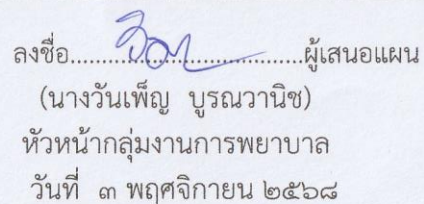 ลงชื่อ................................ผู้เสนอแผน
(นางวันเพ็ญ บูรณวานิช)
หัวหน้ากลุ่มงานการพยาบาล
วันที่ ๓ พฤศจิกายน ๒๕๖๘